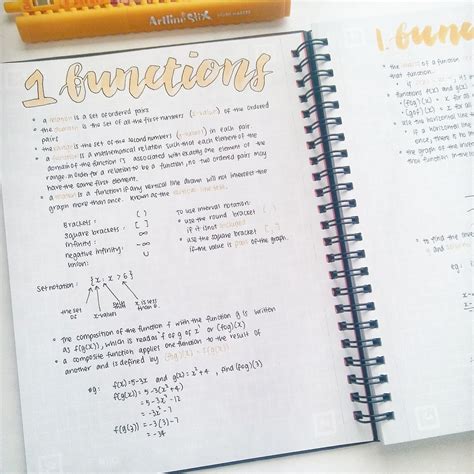 Artline Stix
1 functions
• a relation is a set of ordered pairs
• the domain is the set of all the first numbers (x-value) of the ordered
pairs
• the range is the set of the second numbers (y-value) in each pair.
• a function is a mathematical relation such that each element of the
domain of the function is associated with exactly one element of the
range. in order for a relation to be a function, no two ordered pairs may
have the same first element.
• a relation is a function if any vertical line drawn will not intersect the
graph more than once. known as the vertical line test.
Brackets: ( )
square brackets: [ ]
Infinity: ∞
negative infinity: -∞
union: ∪
To use interval notation:
• use the round bracket ( )
if it is not included
• use the square bracket [ ]
if the value is part of the graph.
Set notation: {x: x > 6}
the set of
x-values
x is less than 6
• the composition of the function f with the function g is written
as f(g(x)), which is read as f of g of x or (fog)(x)
• a composite function applies one function to the result of
another and is defined by (fog)(x) = f(g(x))
eg: f(x)=5-3x and g(x)=x²+4, find (fog)(3)
f(g(x)) = 5-3(x²+4)
= 5-3x²-12
= -3x²-7
f(g(3)) = -3(3)-7
= -34
1. func
• the
of a function
that function.
functions f(x) and g(x)
• (fog)(x) = x for all
• (gof)(x) = x for
• use the horizontal line
• if a horizontal line
once, then
• the graph of the
to find the